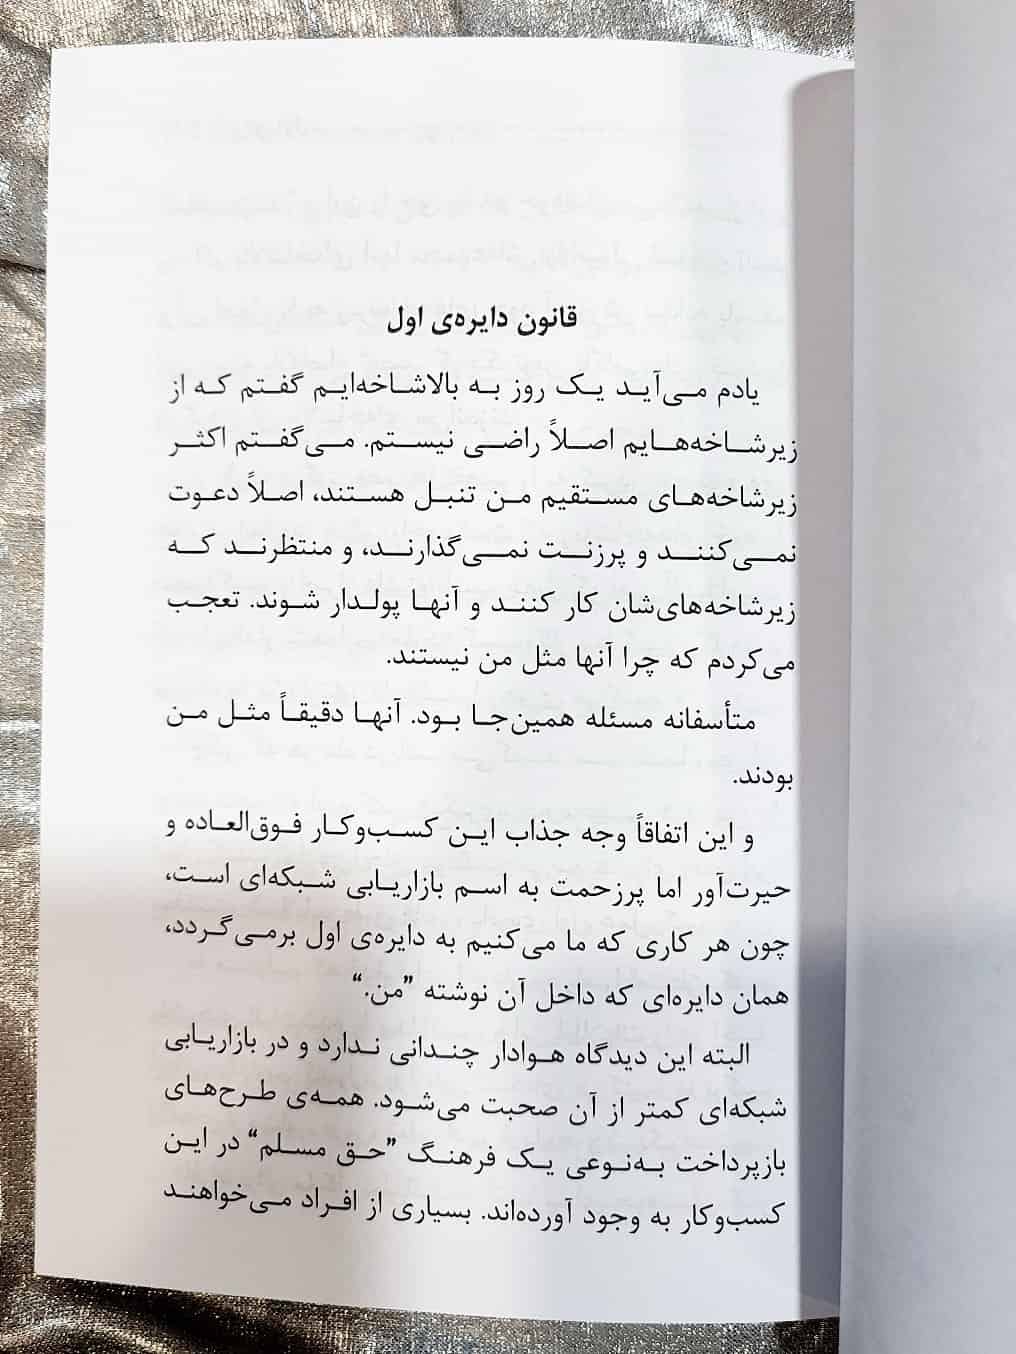 قانون دایره‌ی اول
یادم می‌آید یک روز به بالاشاخه‌ایم گفتم که از
زیرشاخه‌هایم اصلاً راضی نیستم. می‌گفتم اکثر
زیرشاخه‌های مستقیم من تنبل هستند، اصلاً دعوت
نمی‌کنند و پرزنت نمی‌گذارند، و منتظرند که
زیرشاخه‌های‌شان کار کنند و آنها پولدار شوند. تعجب
می‌کردم که چرا آنها مثل من نیستند.
متأسفانه مسئله همین‌جا بود. آنها دقیقاً مثل من
بودند.
و این اتفاقاً وجه جذاب این کسب‌وکار فوق‌العاده و
حیرت‌آور اما پرزحمت به اسم بازاریابی شبکه‌ای است،
چون هر کاری که ما می‌کنیم به دایره‌ی اول برمی‌گردد،
همان دایره‌ای که داخل آن نوشته ”من.“
البته این دیدگاه هوادار چندانی ندارد و در بازاریابی
شبکه‌ای کمتر از آن صحبت می‌شود. همه‌ی طرح‌های
بازپرداخت به‌نوعی یک فرهنگ ”حق مسلم“ در این
کسب‌وکار به وجود آورده‌اند. بسیاری از افراد می‌خواهند